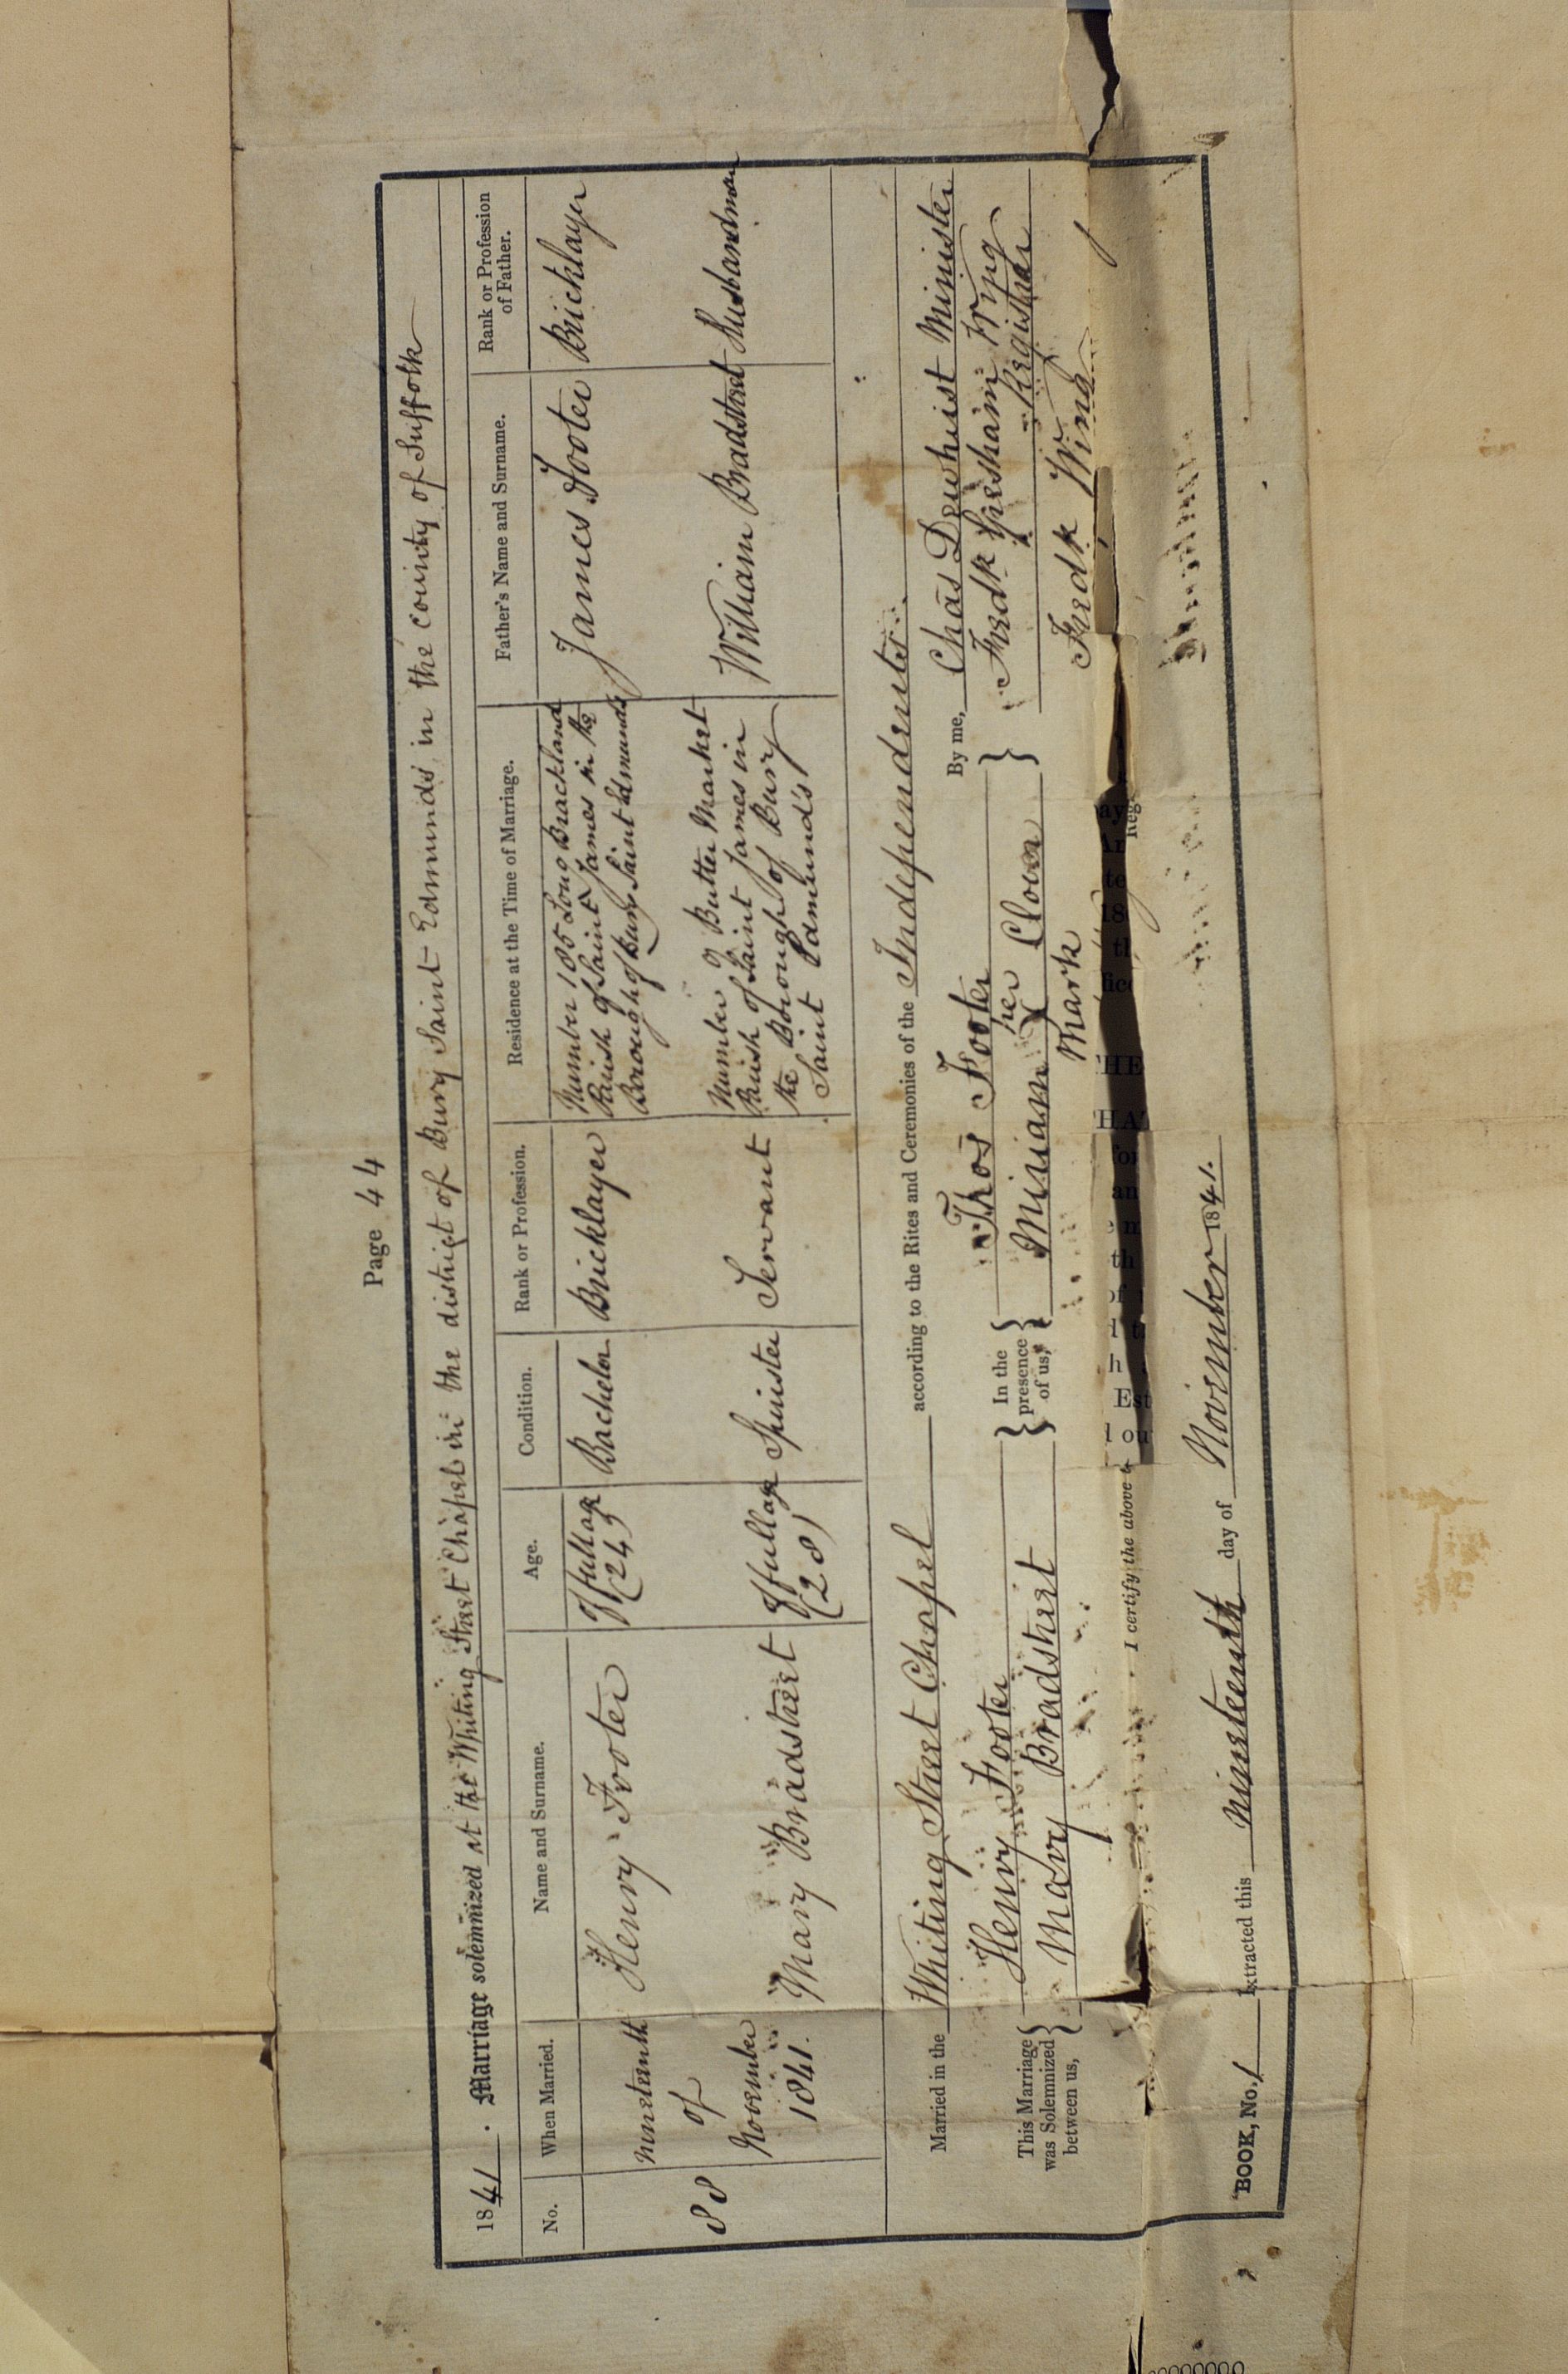 Page 44
1841. Marriage solemnized at the Whiting Street Chapel in the district of Bury Saint Edmunds in the county of Suffolk
No. When Married. Name and Surname. Age. Condition. Rank or Profession. Residence at the Time of Marriage. Father's Name and Surname. Rank or Profession of Father.
88 nineteenth of November 1841. Henry Footer Of full age (24) Bachelor Bricklayer Number 185 Long Brackland Parish of Saint James in the Borough of Bury Saint Edmunds James Footer Bricklayer
Mary Bradstreet Of full age (28) Spinster Servant Number 9 Butter Market Parish of Saint James in the Borough of Bury Saint Edmund's William Bradstreet Husbandman
Married in the Whiting Street Chapel according to the Rites and Ceremonies of the Independents.
This Marriage was Solemnized between us, Henry Footer Mary Bradstreet In the presence of us, Thos Footer Miriam her X mark Clover By me, Chas Dewhirst Minister
Fredk Gresham Wing Registrar
Fredk Wing
I certify the above
BOOK, No. 1 Extracted this nineteenth day of November 1841.